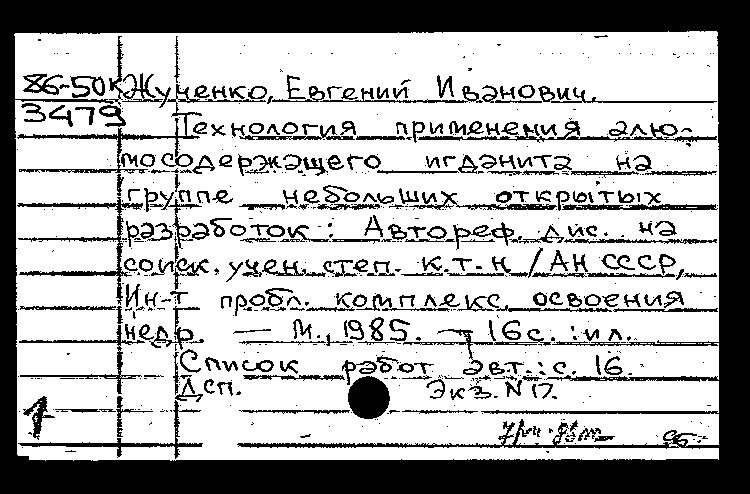 86-50к Жученко, Евгений Иванович.
3479 Технология применения алю-
мосодержащего игданита на
группе небольших открытых
разработок: Автореф. дис. на
соиск. учен. степ. к.т.н /АН СССР,
Ин-т пробл. комплекс. освоения
недр. — М., 1985. — 16с. : ил.
Список работ авт.: с. 16.
Дсп. Экз. N 17.
1